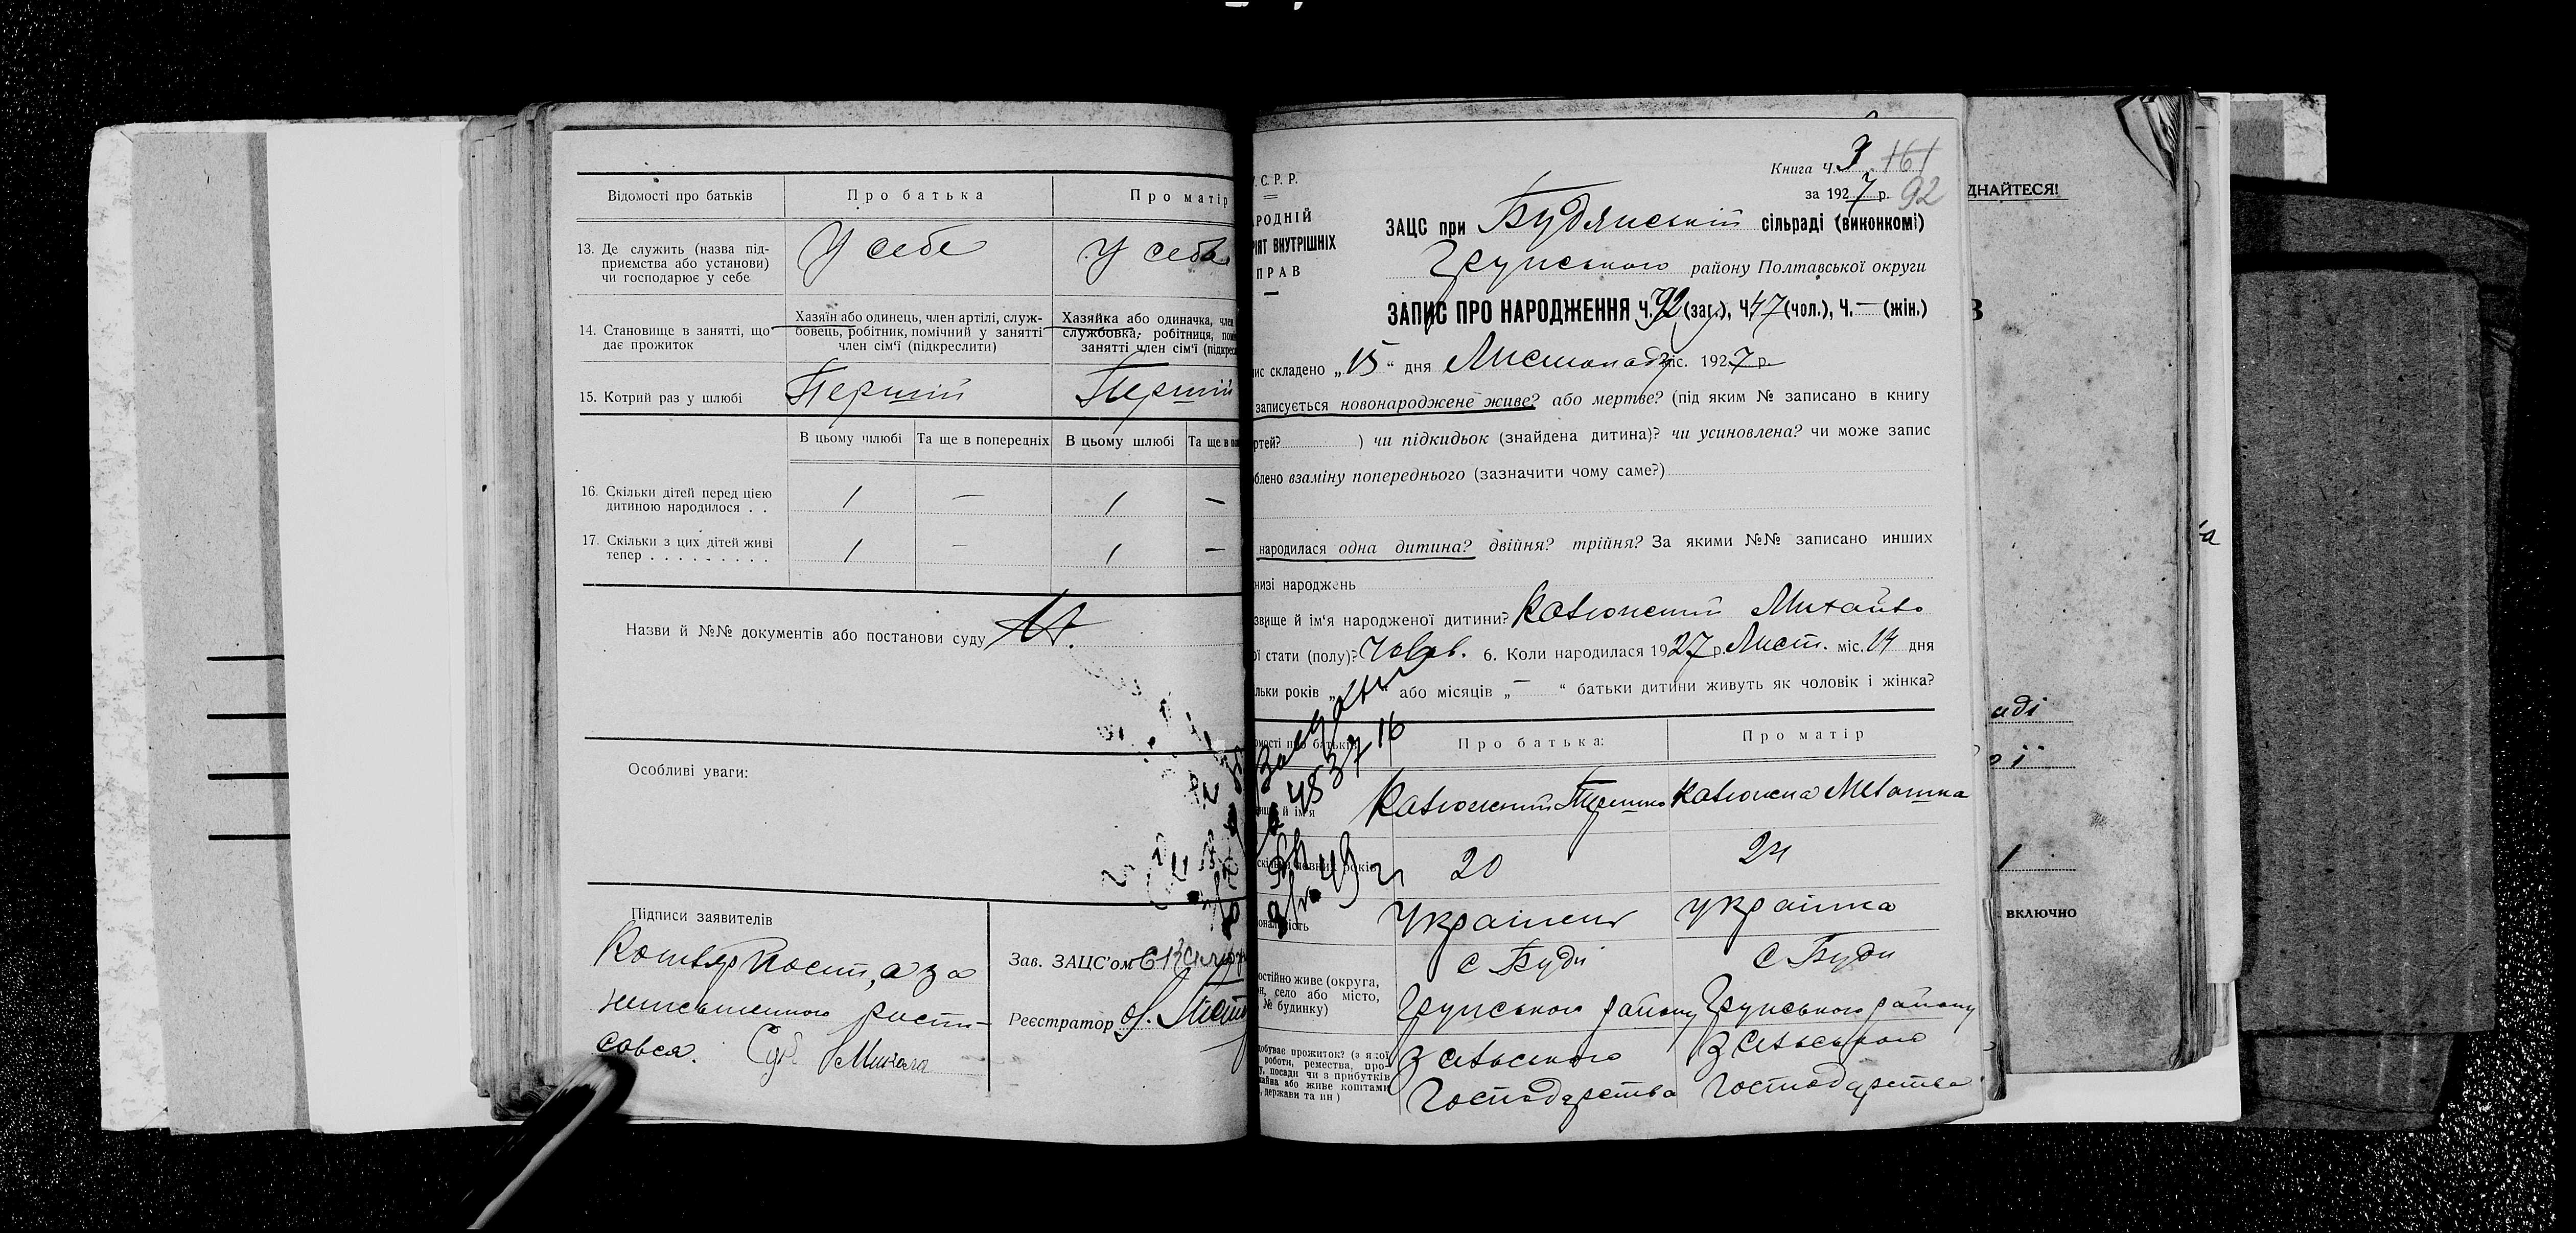 Відомості про батьків
Про батька
Про матір
13. Де служить (назва під-
приємства або установи)
чи господарює у себе
У себе
У себе
14. Становище в занятті, що
дає прожиток
Хазяїн або одинець, член артілі, служ-
бовець, робітник, помічний у занятті
член сім'ї (підкреслити)
Хазяйка або одиначка, член
службовка, робітниця,
занятті член сім'ї
15. Котрий раз у шлюбі
Перший
Перший
В цьому шлюбі
Та ще в попередніх
В цьому шлюбі
Та ще в
16. Скільки дітей перед цією
дитиною народилося . .
1 — 1 —
17. Скільки з цих дітей живі
тепер . . . . . . . . .
1 — 1 —
Назви й №№ документів або постанови суду
Особливі уваги:
Підписи заявителів
а за
неписьменного роспи-
совся.
Зав. ЗАЦС'ом
Реєстратор
Книга Ч. 3 161
за 1927 р. 92
С. Р. Р.
РОДНІЙ
ІЯТ ВНУТРІШНІХ
ПРАВ
ЗАЦС при Будянській сільраді (виконкомі)
Грунського району Полтавської округи
ЗАПИС ПРО НАРОДЖЕННЯ Ч. 92 (заг.), Ч. 47 (чол.), Ч. — (жін.)
ис складено „15“ дня Листопада міс. 1927 р.
записується новонароджене живе? або мертве? (під яким № записано в книгу
ртей? ) чи підкидьок (знайдена дитина)? чи усиновлена? чи може запис
блено взаміну попереднього (зазначити чому саме?)
народилася одна дитина? двійня? трійня? За якими №№ записано инших
низі народжень
звище й ім'я народженої дитини? Михайло
ої стати (полу)? Чолов. 6. Коли народилася 1927 р. Лист. міс. 14 дня
льки років „ “ або місяців „—“ батьки дитини живуть як чоловік і жінка?
Про батька:
Про матір
й ім'я
20
24
Українець
Українка
с Буди
с Буди
остійно живе (округа,
н, село або місто,
№ будинку)
Грунського району
Грунського району
добуває прожиток? (з якої
роботи, ремества, про-
у, посади чи з прибутків
майна або живе коштами
, держави та ин)
З сільського
Господарства
З сільського
Господарства
ДНАЙТЕСЯ!
В
аді
ої
1
ВКЛЮЧНО